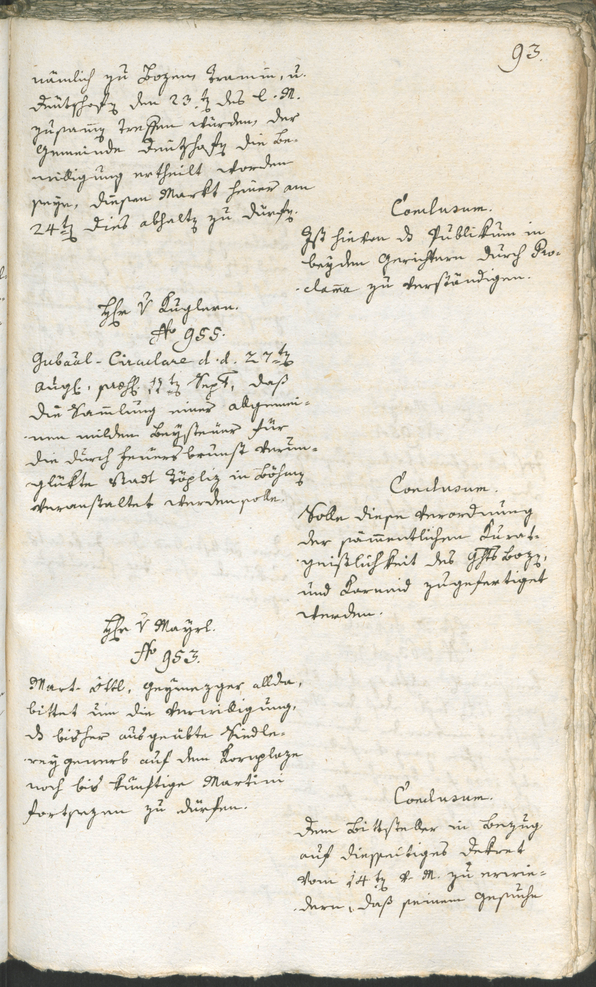 93.
nämlich zu Bozen, Tramin, u.
Deutschofn den 23.t des l. M.
zusam̄ treffen würden, der
Gemeinde Deutschofn die Be-
willigung ertheilt worden
seye, diesen Markt heuer am
24t dies abhaltn zu dürfn.
Conclusum.
Ist hievon ds Publikum in
beyden Gerichtern durch Pro-
clama zu verständigen.
Hr v Kuglern.
No 955.
Gubaal-Circulare d. d. 27t
Augt, praes. 17t Sept, daß
die Sammlung einer allgemei-
nen milden Beysteuer für
die durch Feuersbrunst verun-
glükte Stadt Töpliz in Böhmn
veranstaltet werden solle.
Conclusum.
Solle diese Verordnung
der sämmentlichen Kurat-
geistlichkeit des Ghts Bozn,
und Karneid zugefertiget
werden.
Hr v Mayrl.
No 953.
Mart. Öttl, allda,
bittet um die Verwilligung,
ds bisher ausgeübte Siedle-
reygewerb auf dem Kornplaze
noch bis künftige Martini
fortsezen zu dürfen.
Conclusum.
Dem Bittsteller in Bezug
auf diesseitiges Dekret
vom 14t v. M. zu erwie-
dern, daß seinem Gesuche